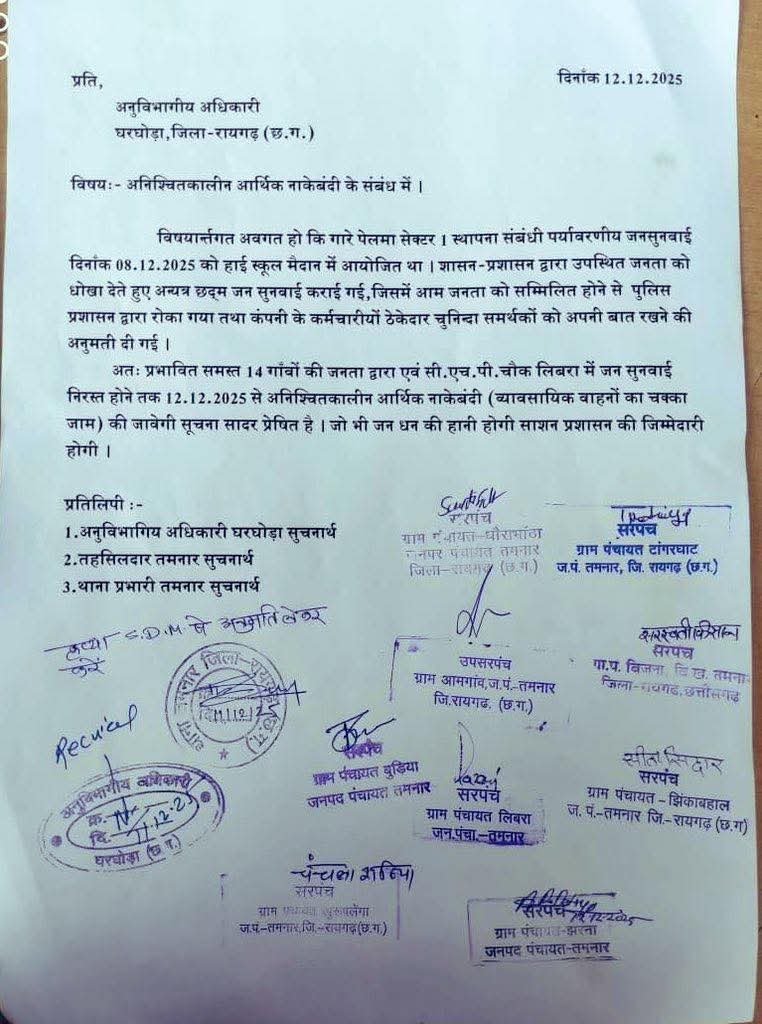 प्रति,
दिनाँक 12.12.2025
अनुविभागीय अधिकारी
घरघोड़ा,जिला-रायगढ़ (छ.ग.)
विषयः- अनिश्चितकालीन आर्थिक नाकेबंदी के संबंध में ।
विषयार्न्तगत अवगत हो कि गारे पेलमा सेक्टर 1 स्थापना संबंधी पर्यावरणीय जनसुनवाई
दिनाँक 08.12.2025 को हाई स्कूल मैदान में आयोजित था । शासन-प्रशासन द्वारा उपस्थित जनता को
धोखा देते हुए अन्यत्र छद्म जन सुनवाई कराई गई,जिसमें आम जनता को सम्मिलित होने से पुलिस
प्रशासन द्वारा रोका गया तथा कंपनी के कर्मचारीयों ठेकेदार चुनिन्दा समर्थकों को अपनी बात रखने की
अनुमती दी गई ।
अतः प्रभावित समस्त 14 गाँवों की जनता द्वारा एवं सी.एच.पी.चौक लिबरा में जन सुनवाई
निरस्त होने तक 12.12.2025 से अनिश्चितकालीन आर्थिक नाकेबंदी (व्यावसायिक वाहनों का चक्का
जाम) की जावेगी सूचना सादर प्रेषित है । जो भी जन धन की हानी होगी साशन प्रशासन की जिम्मेदारी
होगी ।
प्रतिलिपी :-
1.अनुविभागिय अधिकारी घरघोड़ा सुचनार्थ
2.तहसिलदार तमनार सुचनार्थ
3.थाना प्रभारी तमनार सुचनार्थ
सरपंच
ग्राम पंचायत-धौराभांठा
जनपद पंचायत तमनार
जिला-रायगढ़ (छ.ग.)
सरपंच
ग्राम पंचायत टांगरघाट
ज.पं. तमनार, जि. रायगढ़ (छ.ग.)
कृपया S.D.M से अनुमति लेकर
करें
थाना तमनार जिला-रायगढ़ (छ.ग.)
11/12/2
उपसरपंच
ग्राम आमगांव,ज.पं.-तमनार
जि.रायगढ़, (छ.ग.)
सरस्वती किसान
सरपंच
गा.प. बिजना, वि.ख. तमना
जिला-रायगढ़,छत्तीसगढ़
Received
अनुविभागीय अधिकारी
क्र.
दि. 11.12.25
घरघोड़ा (छ.ग.)
सरपंच
ग्राम पंचायत बुड़िया
जनपद पंचायत तमनार
सरपंच
ग्राम पंचायत लिबरा
जन.पंचा.-तमनार
सीता सिदार
सरपंच
ग्राम पंचायत - झिंकाबहाल
ज. पं.-तमनार जि.-रायगढ़ (छ.ग)
चंचला राठिया
सरपंच
ग्राम पंचायत खुरूपलेंगा
ज.पं.-तमनार,जि.-रायगढ़(छ.ग.)
सरपंच
12-12-2025
ग्राम पंचायत-झरना
जनपद पंचायत-तमनार